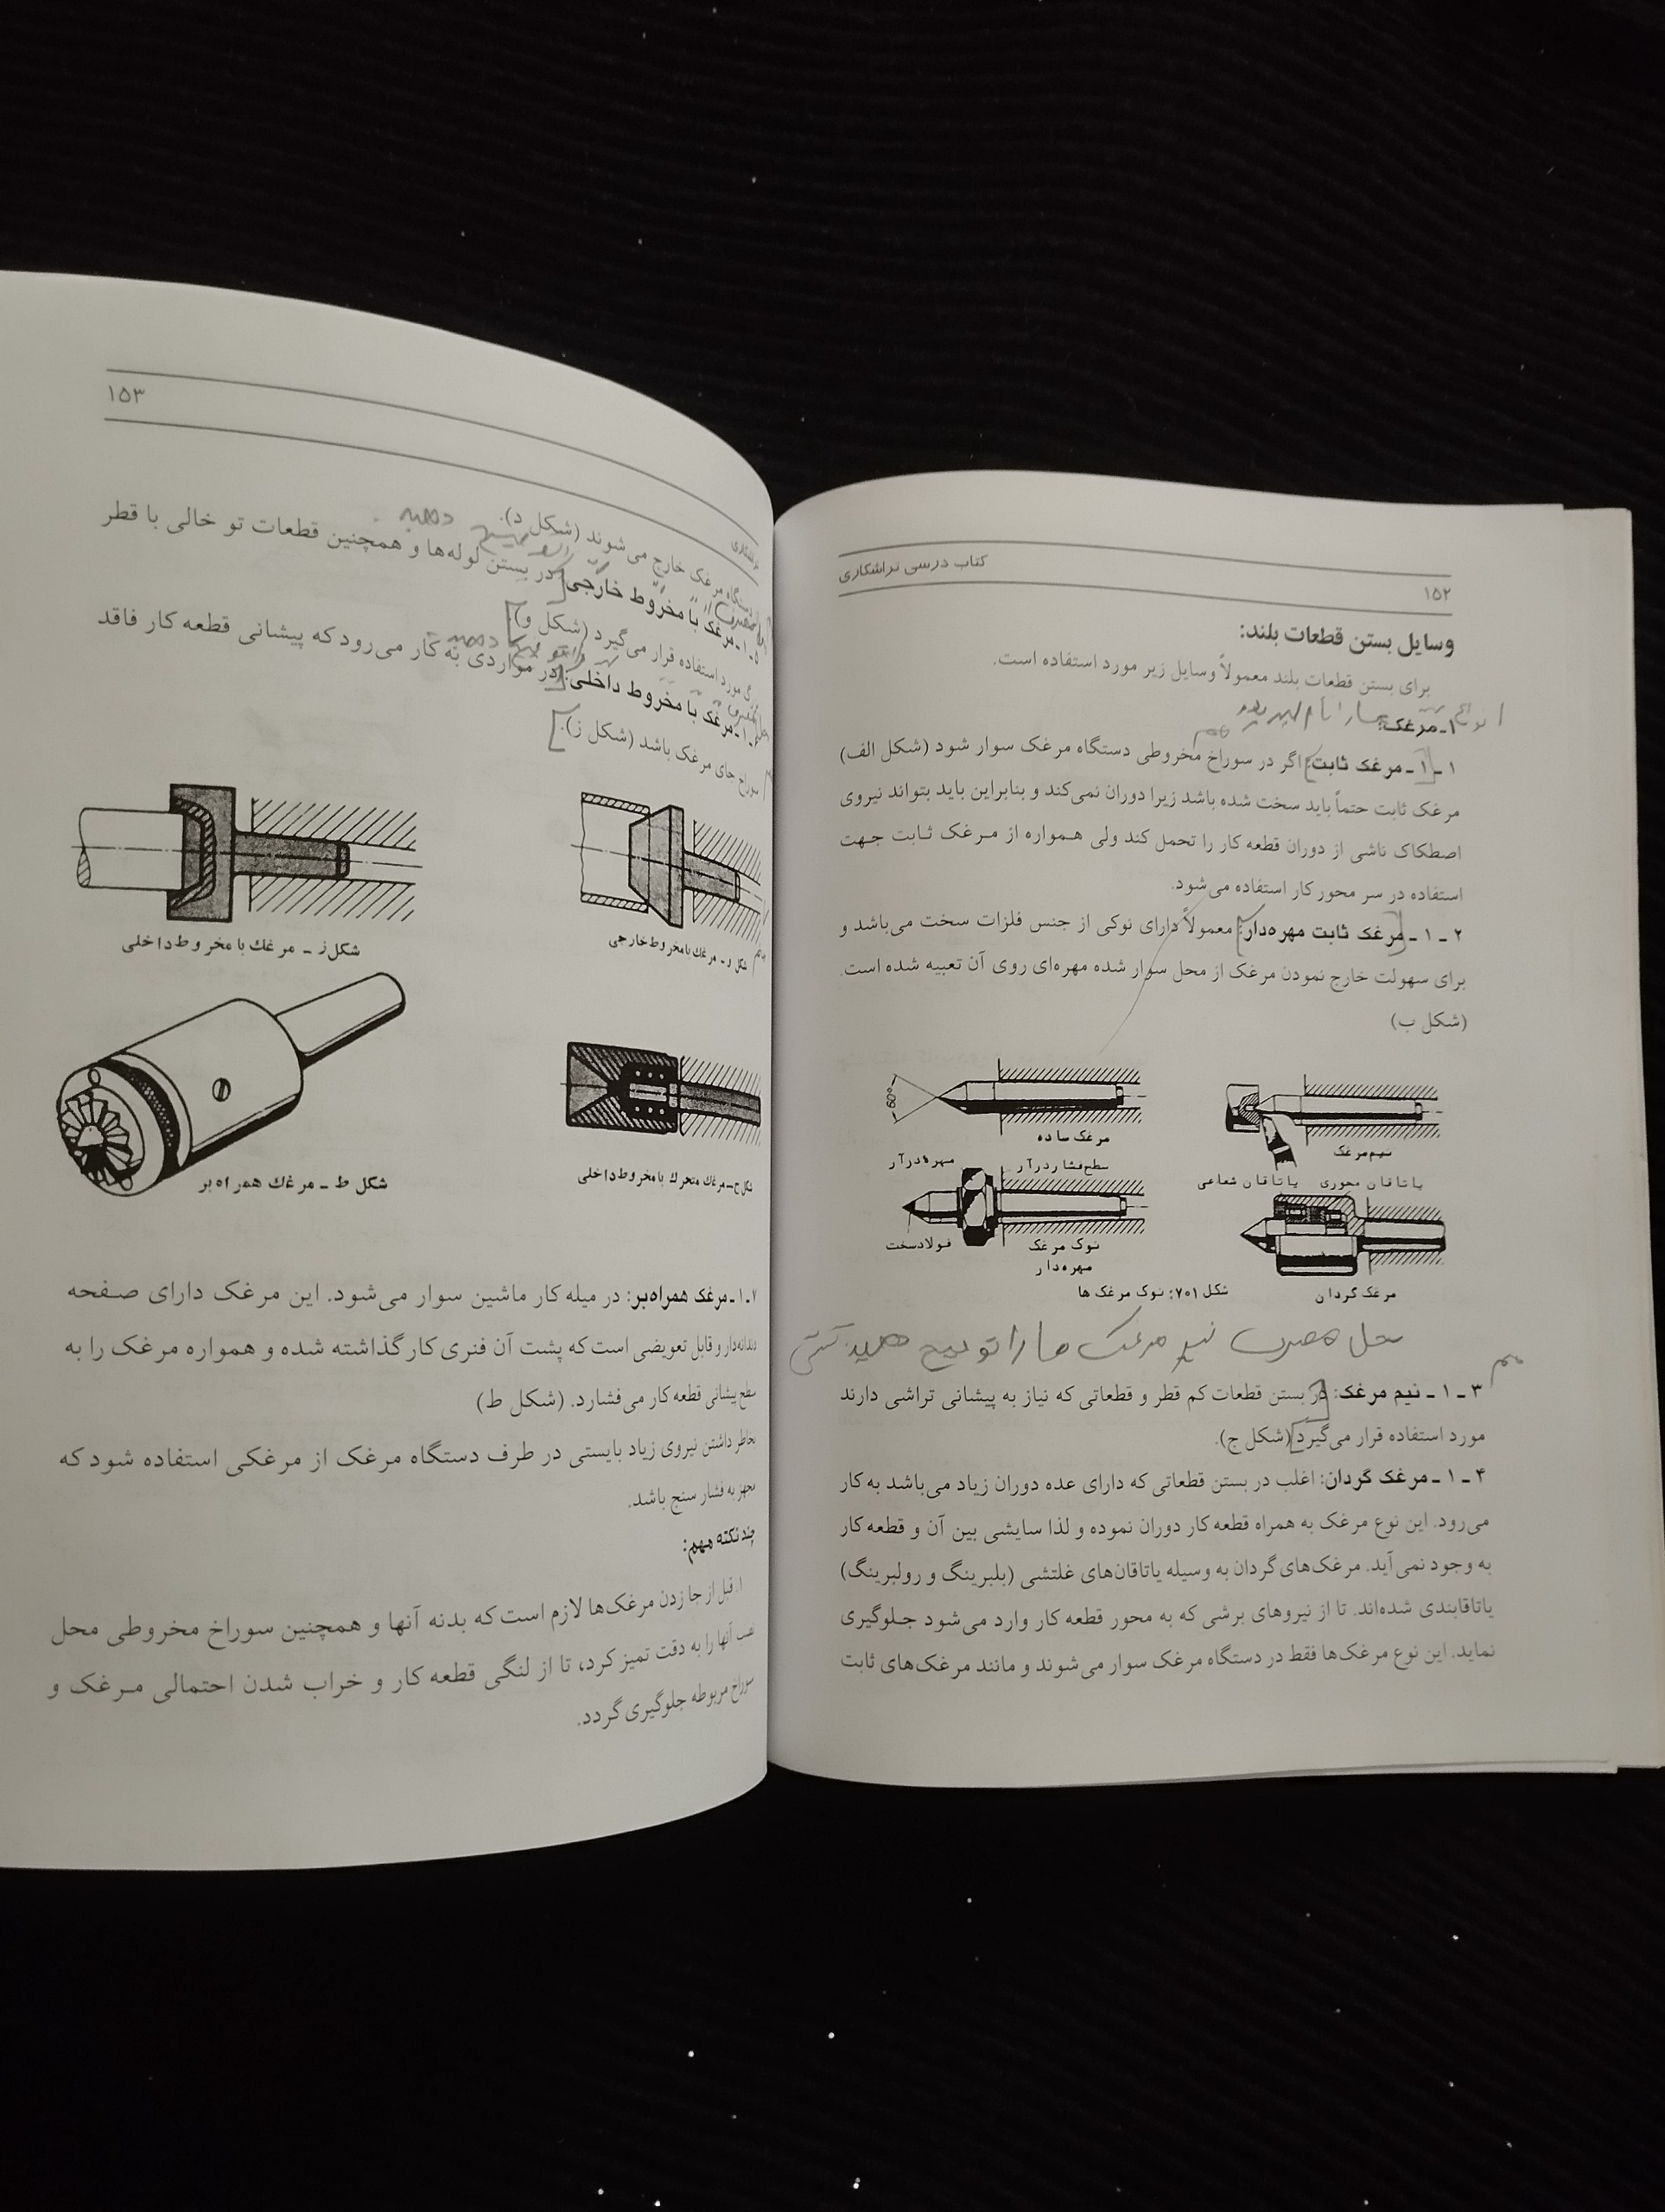 ۱۵۲
کتاب درسی تراشکاری
وسایل بستن قطعات بلند:
برای بستن قطعات بلند معمولاً وسایل زیر مورد استفاده است.
انواع
۱ـ مرغک:
مهم
۱ ـ ۱ ـ مرغک ثابت: اگر در سوراخ مخروطی دستگاه مرغک سوار شود (شکل الف)
مرغک ثابت حتماً باید سخت شده باشد زیرا دوران نمی‌کند و بنابراین باید بتواند نیروی
اصطکاک ناشی از دوران قطعه کار را تحمل کند ولی همواره از مرغک ثابت جهت
استفاده در سر محور کار استفاده می‌شود.
۲ ـ ۱ ـ مرغک ثابت مهره‌دار: معمولاً دارای نوکی از جنس فلزات سخت می‌باشد و
برای سهولت خارج نمودن مرغک از محل سوار شده مهره‌ای روی آن تعبیه شده است.
(شکل ب)
60°
مرغک ساده
نیم مرغک
مهره درآر
سطح فشار درآر
یاتاقان شعاعی
یاتاقان محوری
فولاد سخت
نوک مرغک
مهره‌دار
مرغک گردان
شکل ۷۰۱: نوک مرغک ها
محل مصرف نیم مرغک ها را توضیح دهید
مهم
۳ ـ ۱ ـ نیم مرغک: در بستن قطعات کم قطر و قطعاتی که نیاز به پیشانی تراشی دارند
مورد استفاده قرار می‌گیرد (شکل ج).
۴ ـ ۱ ـ مرغک گردان: اغلب در بستن قطعاتی که دارای عده دوران زیاد می‌باشد به کار
می‌رود. این نوع مرغک به همراه قطعه کار دوران نموده و لذا سایشی بین آن و قطعه کار
به وجود نمی‌آید. مرغک‌های گردان به وسیله یاتاقان‌های غلتشی (بلبرینگ و رولبرینگ)
یاتاقابندی شده‌اند. تا از نیروهای برشی که به محور قطعه کار وارد می‌شود جلوگیری
نماید. این نوع مرغک‌ها فقط در دستگاه مرغک سوار می‌شوند و مانند مرغک‌های ثابت
۱۵۳
تراشکاری
دستگاه مرغک خارج می‌شوند (شکل د).
توضیح دهید
۵ـ۱ـ مرغک با مخروط خارجی: در بستن لوله‌ها و همچنین قطعات تو خالی با قطر
مورد استفاده قرار می‌گیرد (شکل و).
توضیح دهید
۶ـ۱ـ مرغک با مخروط داخلی: در مواردی به کار می‌رود که پیشانی قطعه کار فاقد
سوراخ جای مرغک باشد (شکل ز).
شکل و ـ مرغک با مخروط خارجی
شکل ز ـ مرغک با مخروط داخلی
شکل ح ـ مرغک متحرک با مخروط داخلی
شکل ط ـ مرغک همراه بر
۷ـ۱ـ مرغک همراه‌بر: در میله کار ماشین سوار می‌شود. این مرغک دارای صفحه
دندانه‌دار و قابل تعویضی است که پشت آن فنری کار گذاشته شده و همواره مرغک را به
سطح پیشانی قطعه کار می‌فشارد. (شکل ط)
بخاطر داشتن نیروی زیاد بایستی در طرف دستگاه مرغک از مرغکی استفاده شود که
مجهز به فشار سنج باشد.
چند نکته مهم:
۱. قبل از جا زدن مرغک‌ها لازم است که بدنه آنها و همچنین سوراخ مخروطی محل
نصب آنها را به دقت تمیز کرد، تا از لنگی قطعه کار و خراب شدن احتمالی مرغک و
سوراخ مربوطه جلوگیری گردد.